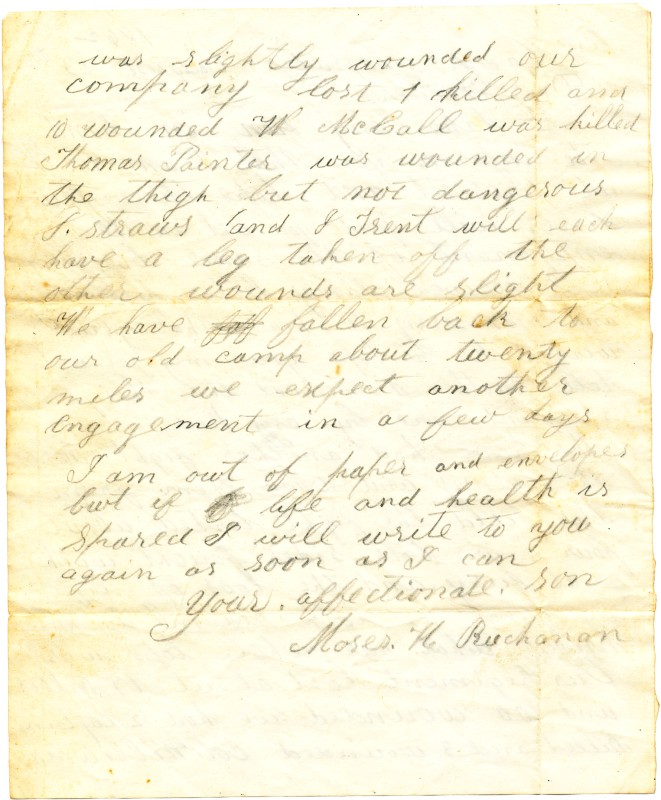 was slightly wounded our
company lost 1 killed and
10 wounded W McCall was killed
Thomas Painter was wounded in
the thigh but not dangerous
J. straws and J Trent will each
have a leg taken off the
other wounds are slight
We have fallen back to
our old camp about twenty
miles we expect another
engagement in a few days
I am owt of paper and envelopes
bwt if life and health is
spared I will write to you
again as soon as I can
Your. affectionate. son
Moses. H Buchanan